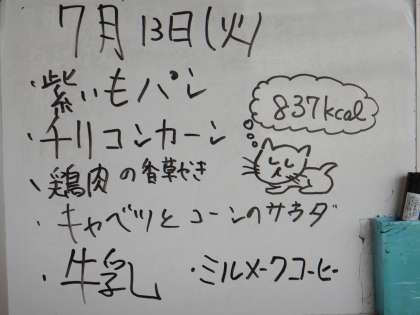 7月13日(火)
・紫いもパン
・チリコンカーン
・鶏肉の香草やき
・キャベツとコーンのサラダ
・牛乳 ・ミルメークコーヒー
837kcal